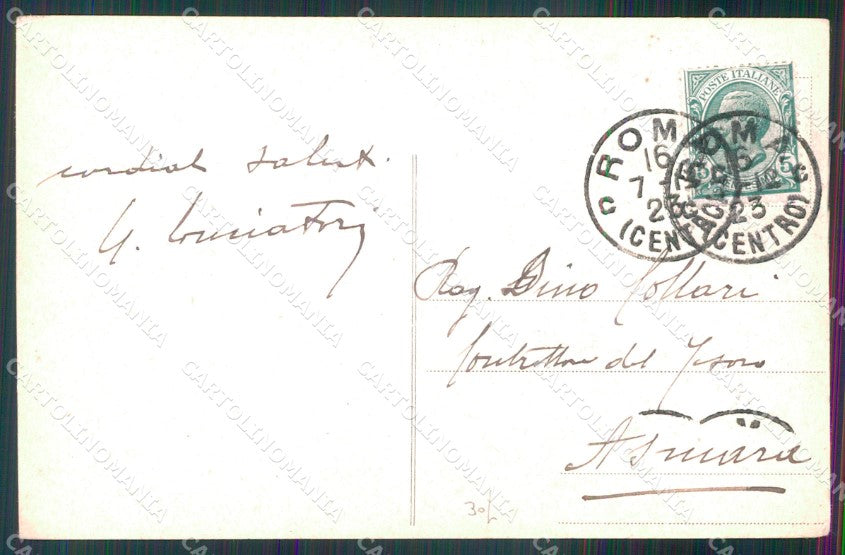 cordial saluti.
POSTE ITALIANE
5 5
ROMA
16
7-12
23
(CENTRO)
ROMA
16
7-12
23
(CENTRO)
Rag. Dino Collari
Controllore del Tesoro
Asmara
30/-
CARTOLINOMANIA